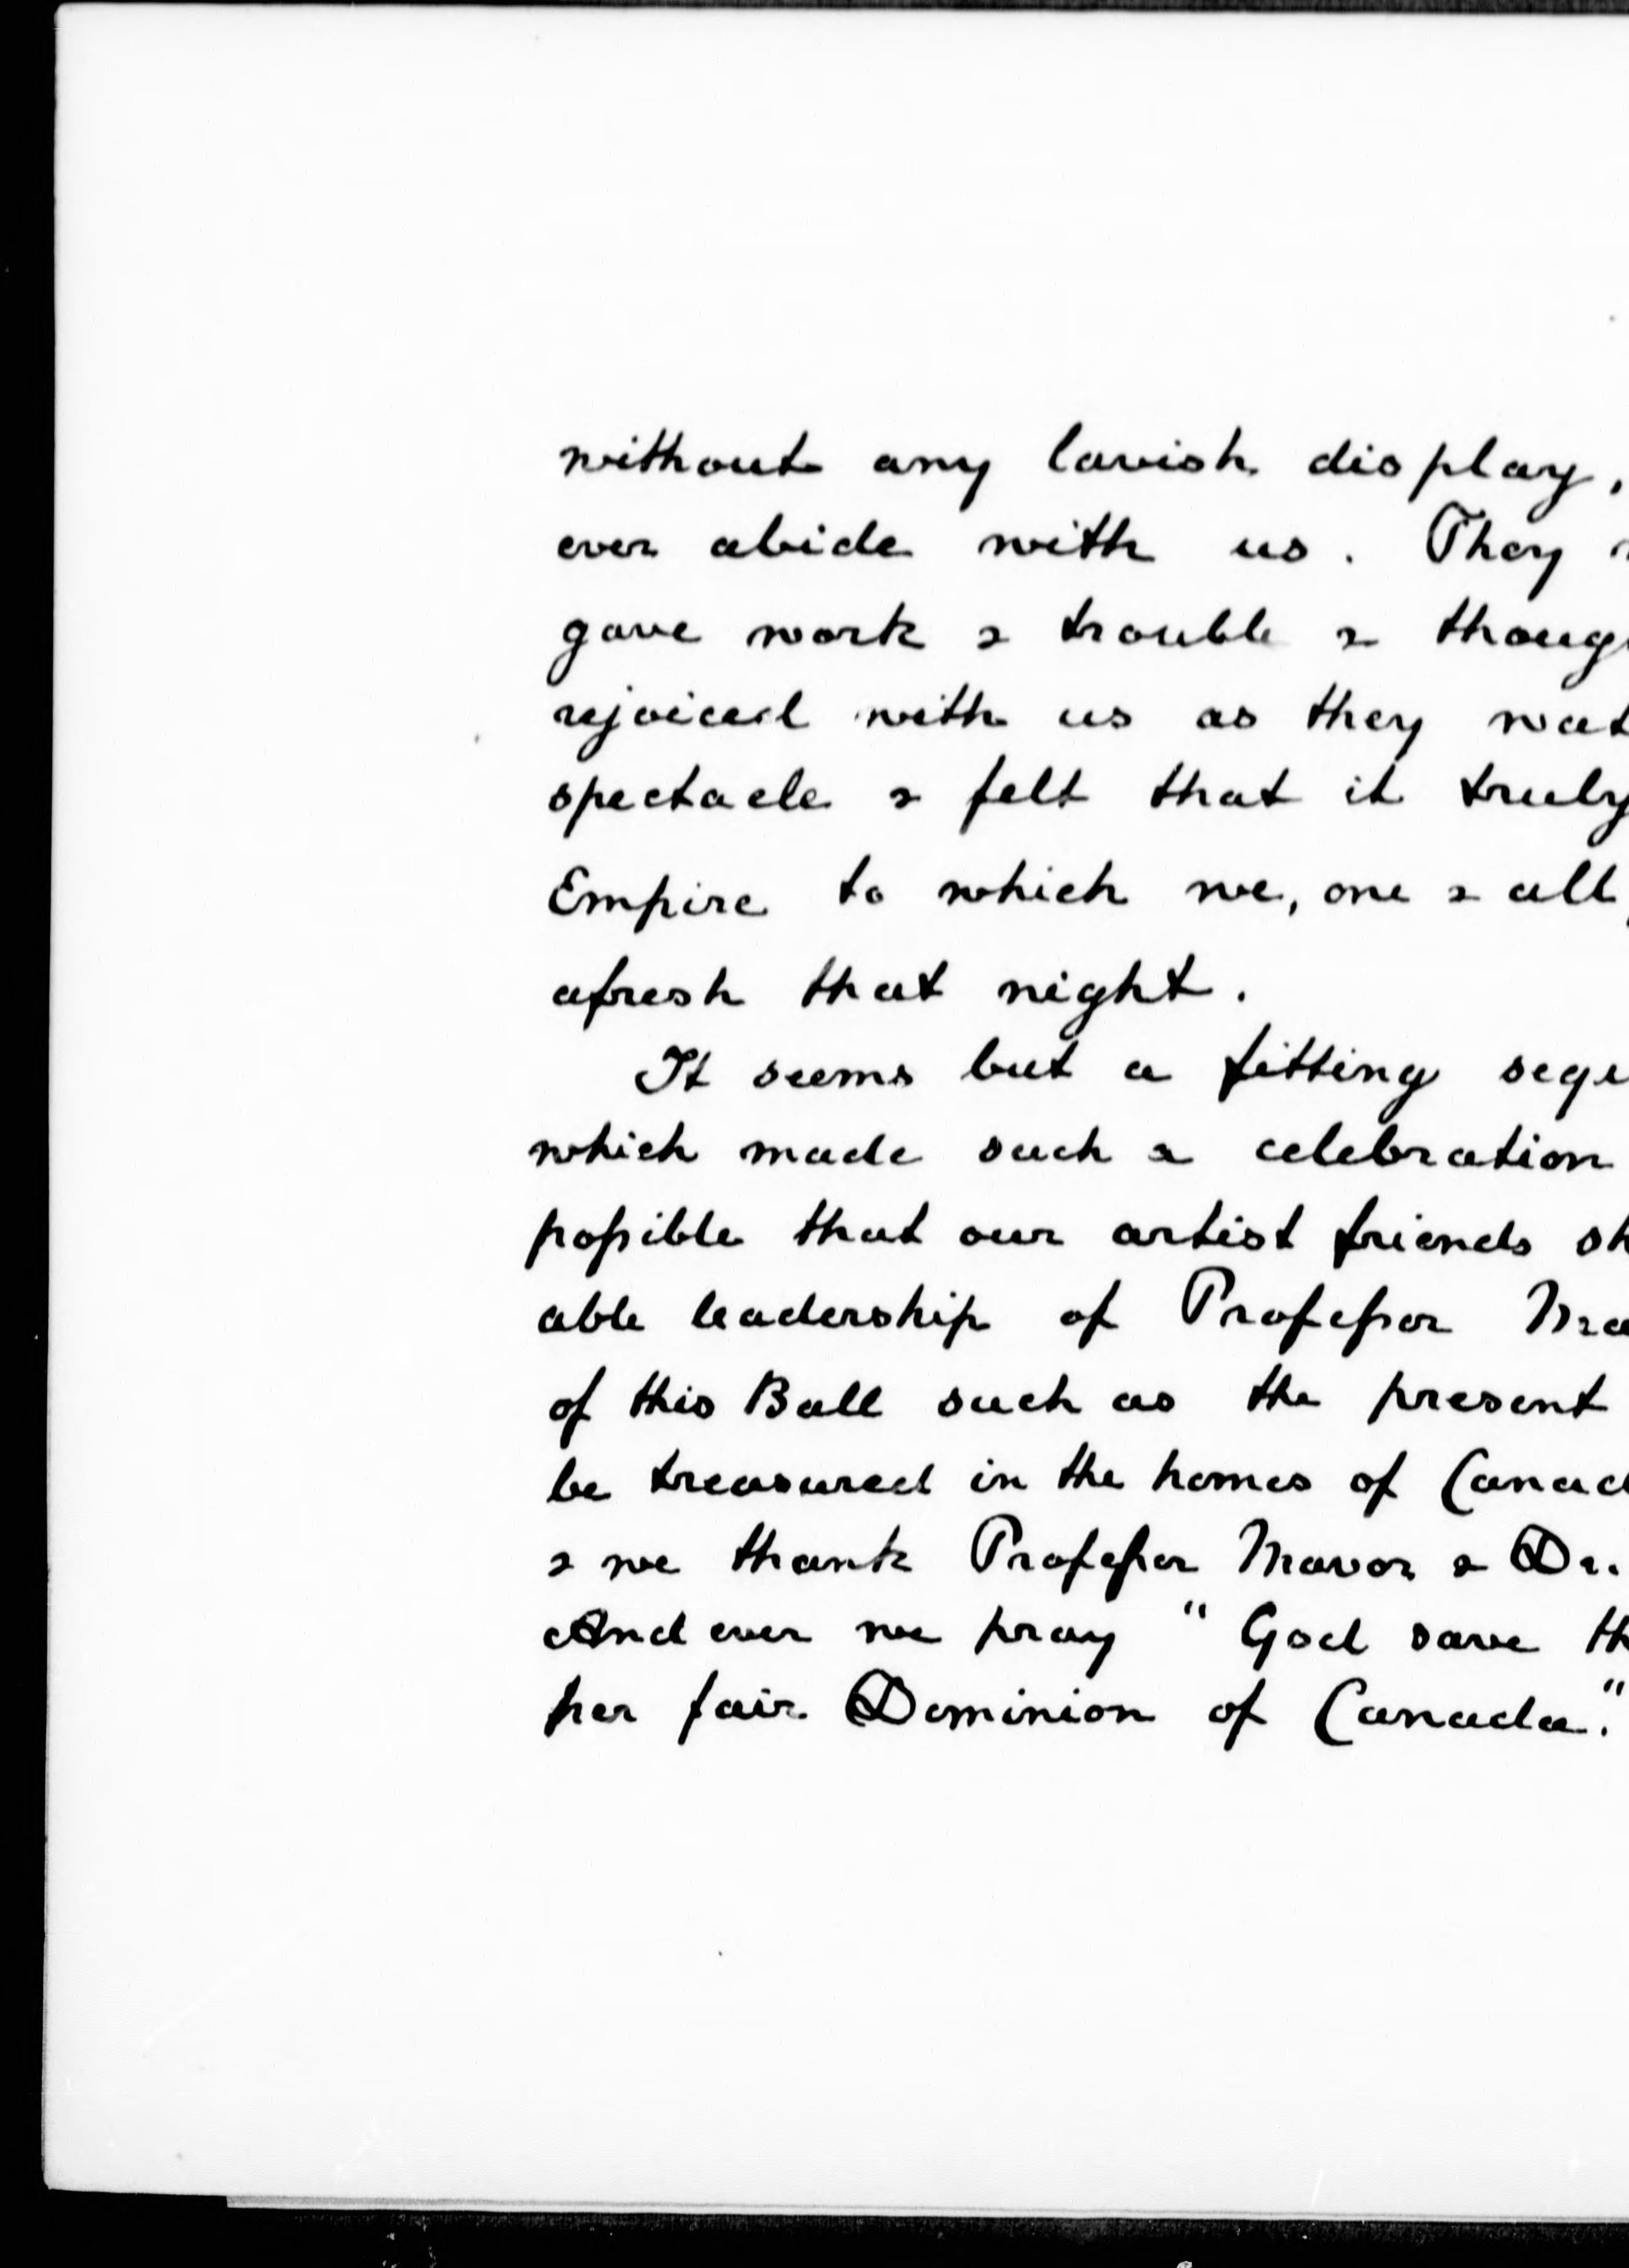 without any lavish display,
ever abide with us. They
gave work & trouble & thoug
rejoiced with us as they wat
spectacle & felt that it truly
Empire to which we, one & all,
afresh that night.
It seems but a fitting sequ
which made such a celebration
possible that our artist friends sh
able leadership of Professor Ma
of this Ball such as the present
be treasured in the homes of Canad
& we thank Professor Mavor & Dr.
And ever we pray "God save th
her fair Dominion of Canada."